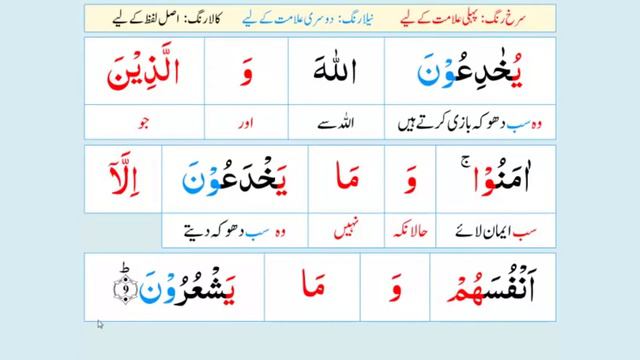 سرخ رنگ: پہلی علامت کے لیے نیلا رنگ: دوسری علامت کے لیے کالا رنگ: اصل لفظ کے لیے
يُخٰدِعُوْنَ اللّٰهَ وَ الَّذِيْنَ
وہ سب دھوکہ بازی کرتے ہیں اللہ سے اور جو
اٰمَنُوْا ۚ وَ مَا يَخْدَعُوْنَ اِلَّآ
سب ایمان لائے حالانکہ نہیں وہ سب دھوکہ دیتے
اَنْفُسَهُمْ وَ مَا يَشْعُرُوْنَ ؕ ﴿۹﴾